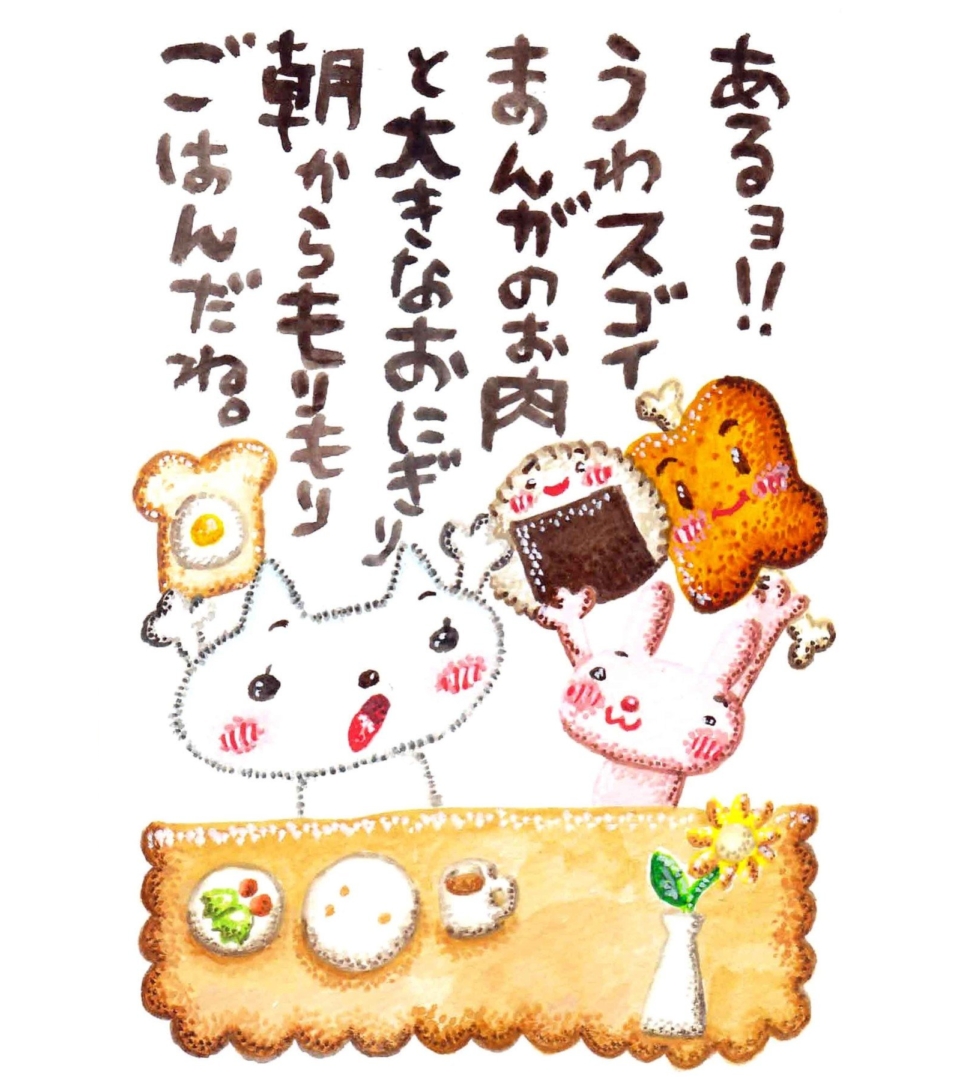 あるョ!!
うわスゴイ
まんがのお肉
と大きなおにぎり
朝からモリモリ
ごはんだね。